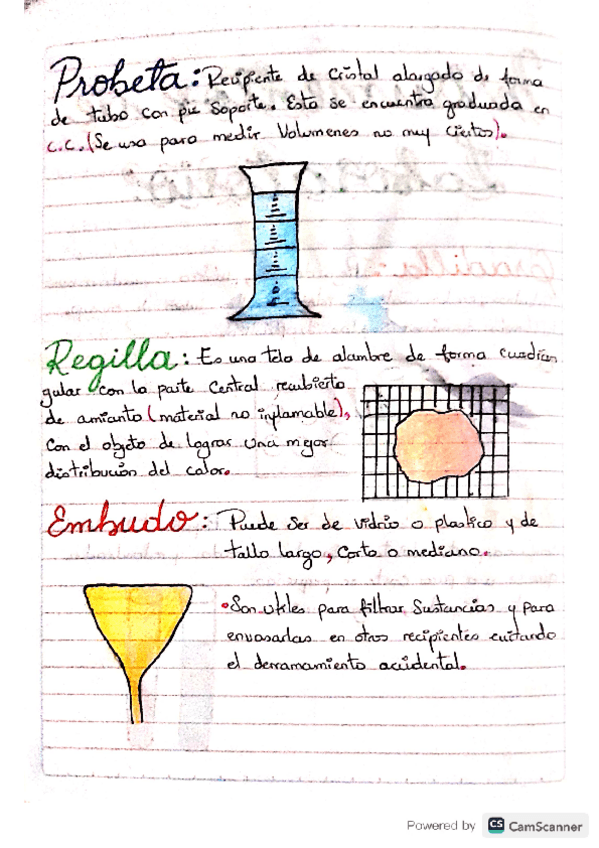 Probeta: Recipiente de cristal alargado de forma
de tubo con pie soporte. Esta se encuentra graduada en
c.c. (Se usa para medir Volumenes no muy ciertos).
Regilla: Es una tela de alambre de forma cuadran
gular con la parte Central recubierta
de amianto (material no inflamable),
Con el objeto de lograr una mejor
distribución del calor.
Embudo: Puede ser de vidrio o plastico y de
tallo largo, Corto o mediano.
•Son utiles para filtrar Sustancias y para
envasarlas en otros recipientes evitando
el derramamiento accidental.
Powered by CS CamScanner